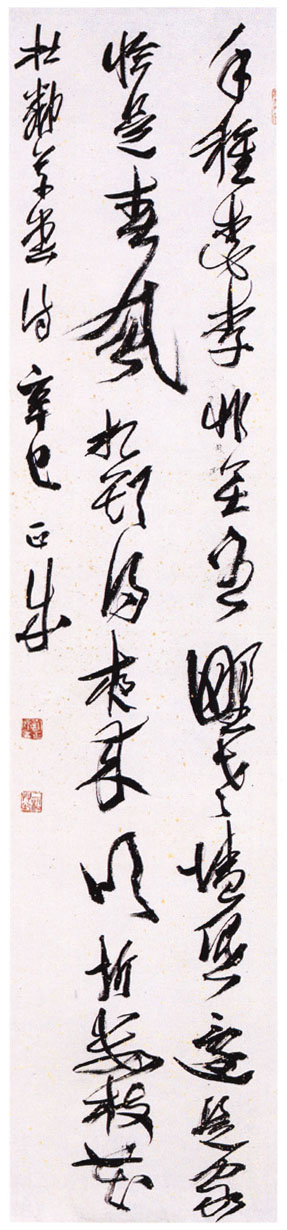 手種桃李非無主野老墻低還是家
恰是春風相欺得夜來吹折數枝花
杜草堂詩 辛巳 正成